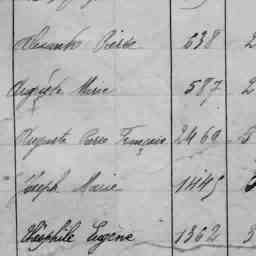 Alexandre Pierre 638 2
Auguste Marie 587 2
Auguste Pierre François 2469 5
Joseph Marie 1445
Théophile Eugène 1362 3